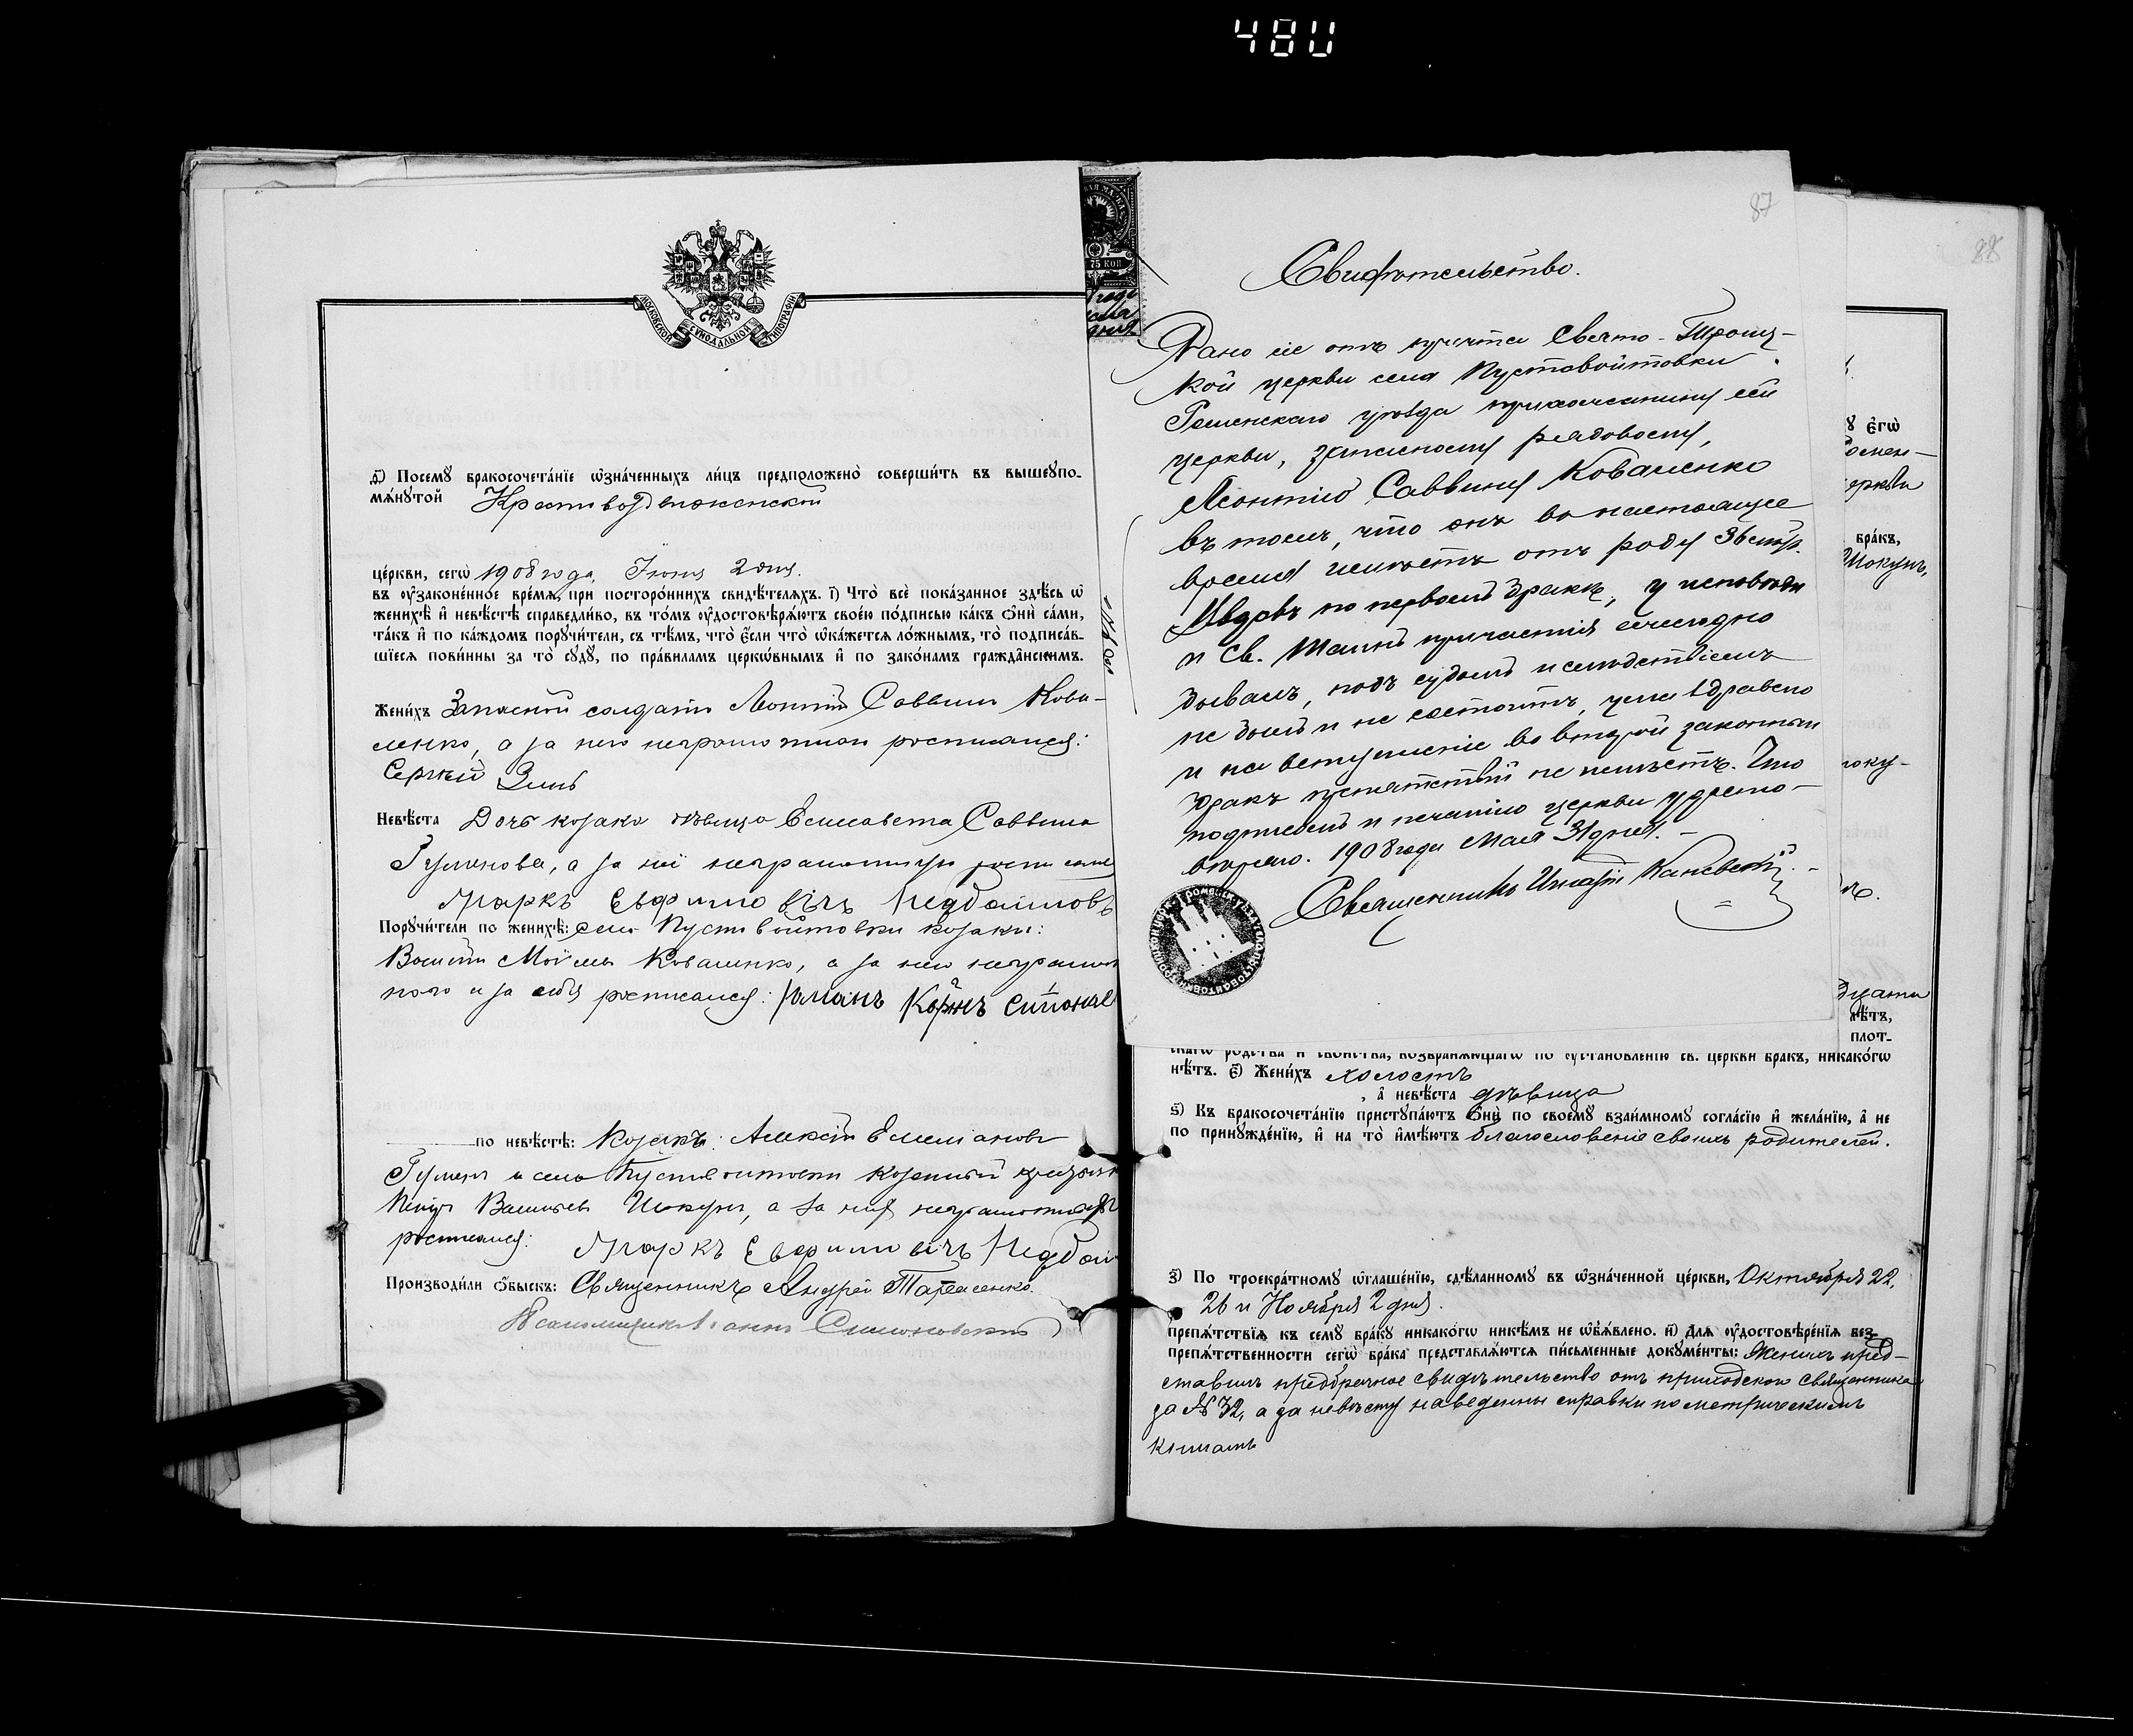 480
МОСКОВСКОЙ СѴНОДАЛЬНОЙ ТИПОГРАФІИ
д҃) Посемꙋ бракосочета́нїе ѡ҆зна́ченныхъ ли́цъ предположено̀ соверши́ть въ вышеꙋпо-
мѧ́нꙋтой Крестовоздвиженской
це́ркви, сегѡ̀ 1908 года, Іюня 2 дня.
въ оу҆зако́ненное вре́мѧ, при посторо́ннихъ свидѣ́телѧхъ. і҃) Что̀ всѐ пока́занное здѣ́сь ѡ҆
женихѣ̀ и҆ невѣ́стѣ справедли́во, въ то́мъ оу҆достовѣрѧ́ютъ свое́ю по́дписью ка́къ ѻ҆нѝ са́ми,
та́къ и҆ по ка́ждомъ порꙋчи́тели, съ тѣ́мъ, что̀ є҆́сли что̀ ѡ҆ка́жетсѧ ло́жнымъ, то̀ подписа́в-
шїесѧ пови́нны за то̀ сꙋдꙋ̀, по пра́виламъ церко́внымъ и҆ по зако́намъ гражда́нскимъ.
Жени́хъ Запасной солдатъ Леонтій Саввинъ Кова-
ленко, а за него неграмотнаго росписался:
Сергѣй Зинь
Невѣ́ста Дочь козака дѣвица Елисавета Саввина
Гуменова, а за неё неграмотную росписался
Маркъ Евфимовичъ Недбайловъ
Порꙋчи́тели по женихѣ̀: села Пустовойтовки козаки:
Василій Коваленко, а за него неграмот
ного и за себя росписался: Романъ
по невѣ́стѣ: Козакъ: Алексѣй Емеліановъ
Гуменъ и села Пустовойтовки козачій
Василіевъ Шокунъ, а за нихъ неграмотныхъ
росписался: Маркъ Евфимовичъ Недбай
Производи́ли ѻ҆́быскъ: Священникъ Андрей Тарасенко.
Псаломщикъ Іоаннъ Симоновскій
75 КОП
87
Свидѣтельство.
Дано сіе отъ причта Свято-Троиц-
кой церкви села Пустовойтовки
Роменскаго уѣзда прихожанину сей
церкви, запасному рядовому,
Леонтію Саввину Коваленко
въ томъ, что онъ въ настоящее
время имѣетъ отъ роду 36 лѣтъ,
вдовъ по первомъ бракѣ, у исповѣди
и Св. Таинъ причастія ежегодно
бывалъ, подъ судомъ и слѣдствіемъ
не былъ и не состоитъ, ума здраваго
и на вступленіе во второй законный
бракъ препятствій не имѣетъ. Что
подписомъ и печатію церкви удосто-
вѣряю. 1908 года Мая 31 дня.-
Священникъ Каневскій
88
ꙋ є҆гѡ̀
Ромен-
церкви
бра́къ,
Шокунъ,
лѣ́тъ,
плот-
скагѡ родства̀ и҆ сво́йства, возбранѧ́ющагѡ по оу҆становле́нїю св. це́ркви бра́къ, никако́гѡ
нѣ́тъ. є҃) Жени́хъ холостъ
, а҆ невѣ́ста дѣвица
ѕ҃) Къ бракосочета́нїю пристꙋпа́ютъ ѻ҆нѝ по своемꙋ̀ взаи́мномꙋ согла́сїю и҆ жела́нїю, а҆ не
по принꙋжде́нїю, и҆ на то̀ и҆мѣ́ютъ благословеніе своихъ родителей.
з҃) По троекра́тномꙋ ѡ҆глаше́нїю, сдѣ́ланномꙋ въ ѡ҆зна́ченной це́ркви, Октября 22,
26 и Ноября 2 дня.
препѧ́тствїѧ къ семꙋ̀ бра́кꙋ никако́гѡ никѣ́мъ не ѡ҆б̾ѧ́влено. и҃) Длѧ̀ оу҆достовѣре́нїѧ без-
препѧ́тственности сегѡ̀ бра́ка представлѧ́ютсѧ пи́сьменные докꙋме́нты: Женихъ пред-
ставилъ предбрачное свидѣтельство отъ приходскаго священника
за № 32, а за невѣсту наведены справки по метрическимъ
книгамъ